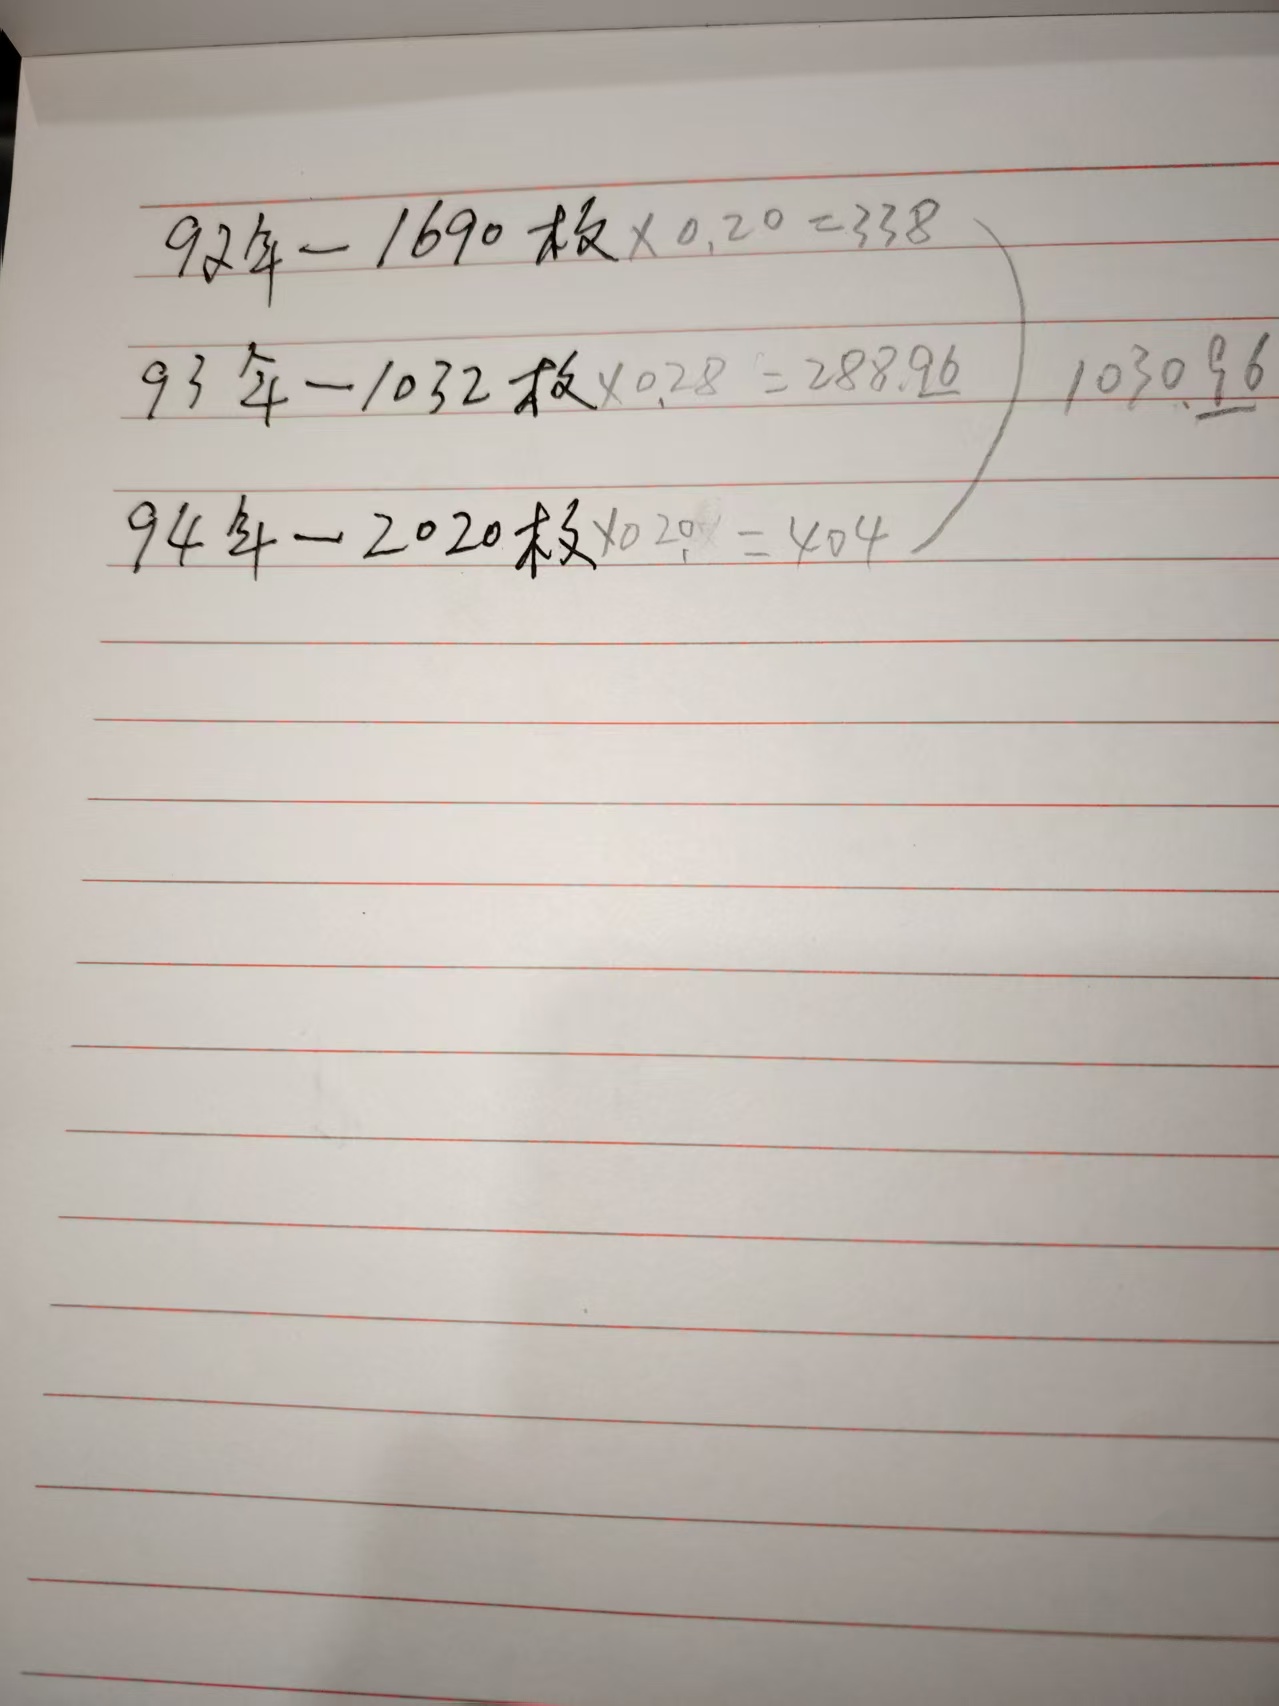 92年－1690枚×0.20=338
93年－1032枚×0.28=288.96 1030.96
94年－2020枚×0.20=404